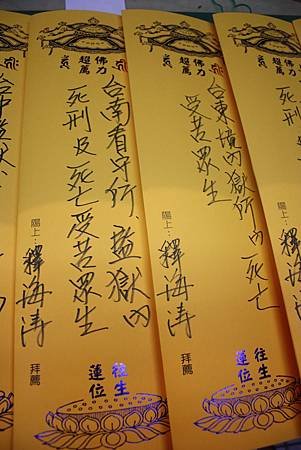 佛力
超薦
陽上：釋海濤
佛力
超薦
台東境內獄所內死亡
受苦眾生
陽上：釋海濤 拜薦
往生
蓮位
佛力
超薦
台南看守所、監獄內
死刑及死亡受苦眾生
陽上：釋海濤 拜薦
往生
蓮位
台中監獄、